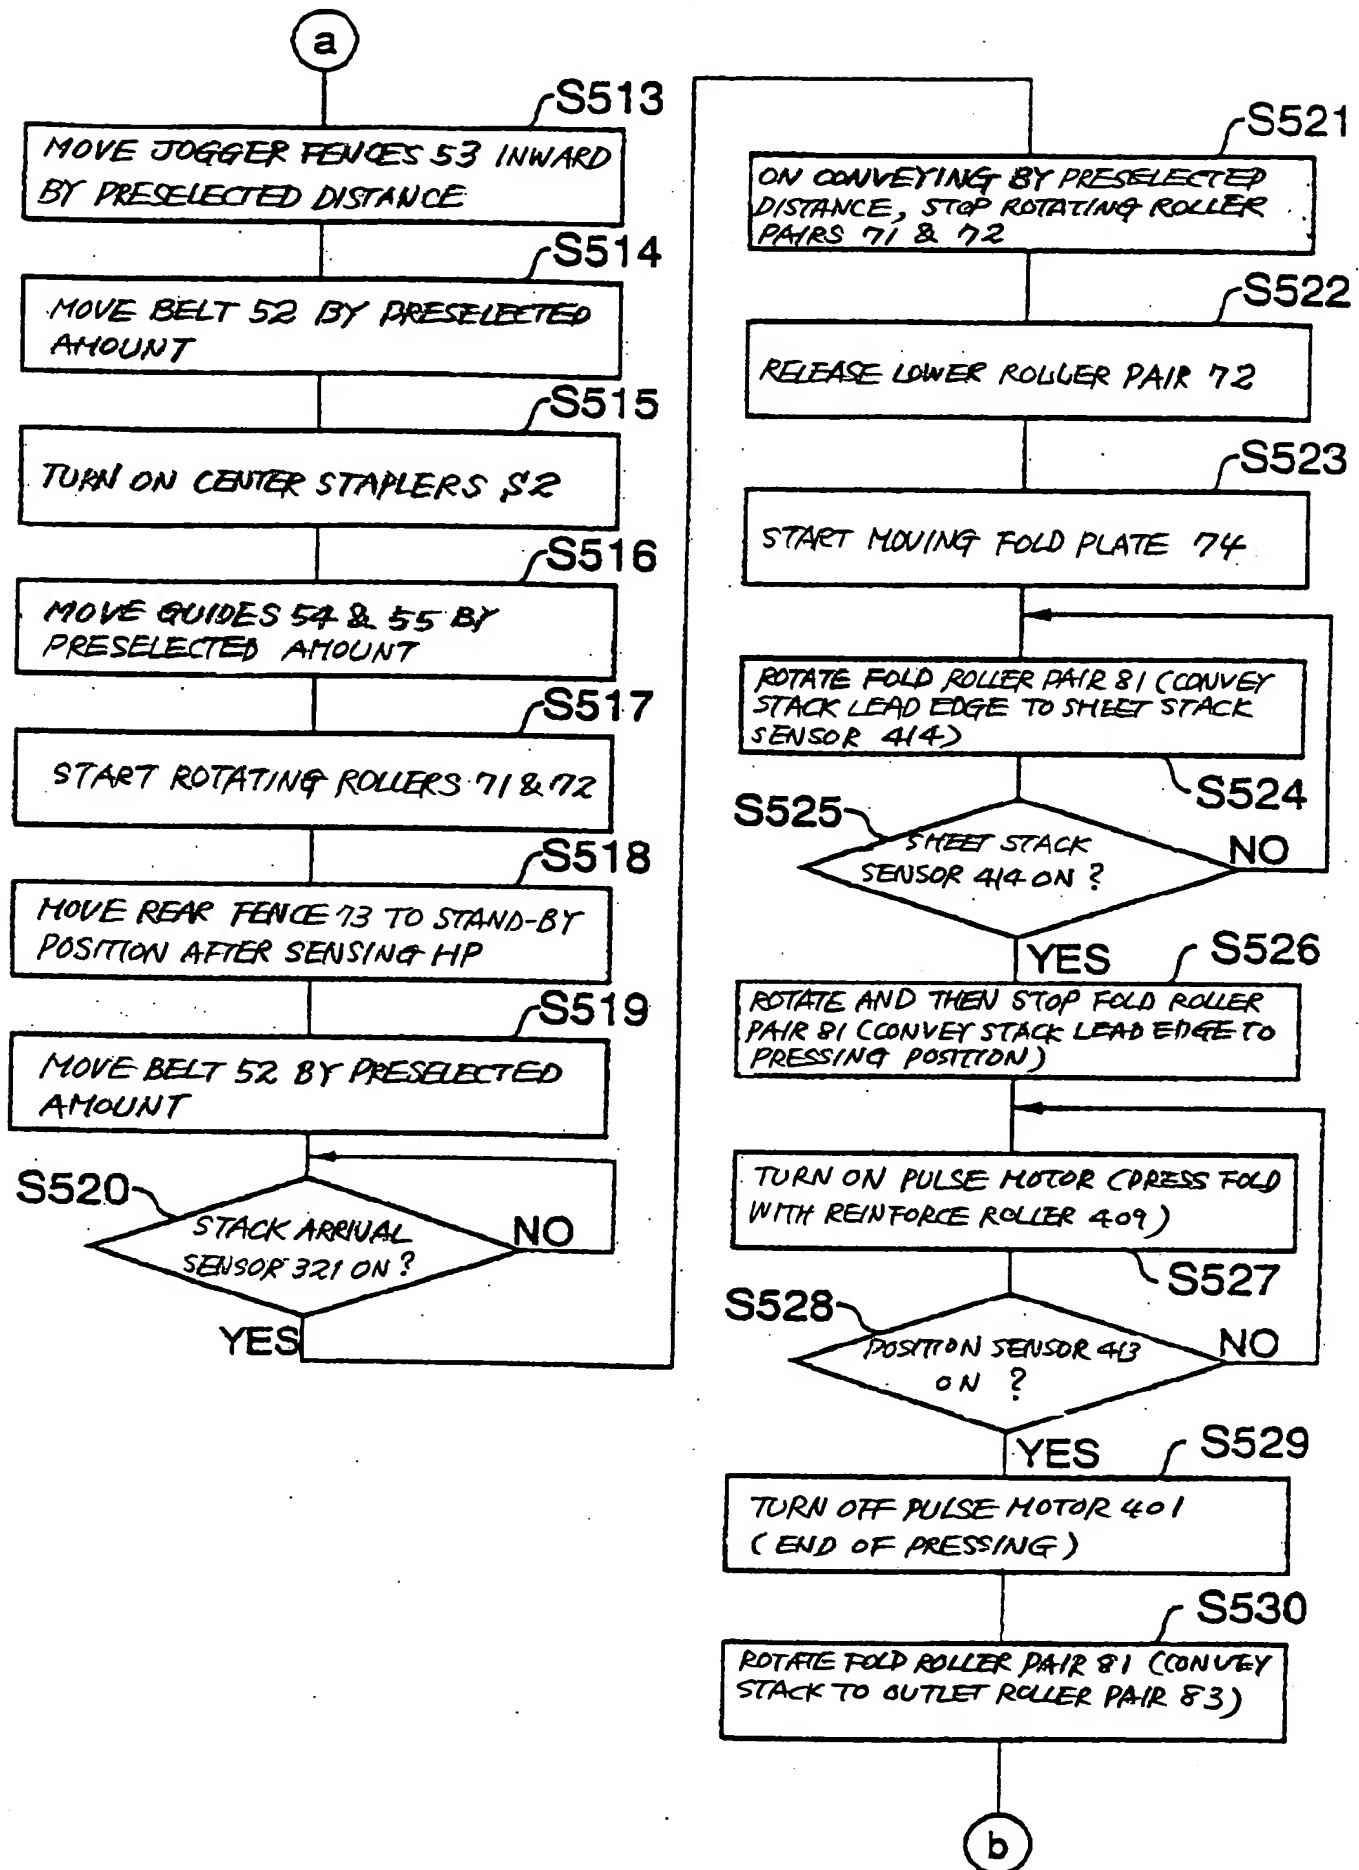 a
S513
MOVE JOGGER FENCES 53 INWARD
BY PRESELECTED DISTANCE
S514
MOVE BELT 52 BY PRESELECTED
AMOUNT
S515
TURN ON CENTER STAPLERS S2
S516
MOVE GUIDES 54 & 55 BY
PRESELECTED AMOUNT
S517
START ROTATING ROLLERS 71 & 72
S518
MOVE REAR FENCE 73 TO STAND-BY
POSITION AFTER SENSING HP
S519
MOVE BELT 52 BY PRESELECTED
AMOUNT
S520
STACK ARRIVAL
SENSOR 321 ON?
NO
YES
S521
ON CONVEYING BY PRESELECTED
DISTANCE, STOP ROTATING ROLLER
PAIRS 71 & 72
S522
RELEASE LOWER ROLLER PAIR 72
S523
START MOVING FOLD PLATE 74
ROTATE FOLD ROLLER PAIR 81 (CONVEY
STACK LEAD EDGE TO SHEET STACK
SENSOR 414)
S524
S525
SHEET STACK
SENSOR 414 ON?
NO
YES
S526
ROTATE AND THEN STOP FOLD ROLLER
PAIR 81 (CONVEY STACK LEAD EDGE TO
PRESSING POSITION)
TURN ON PULSE MOTOR (PRESS FOLD
WITH REINFORCE ROLLER 409)
S527
S528
POSITION SENSOR 413
ON ?
NO
YES
S529
TURN OFF PULSE MOTOR 401
(END OF PRESSING)
S530
ROTATE FOLD ROLLER PAIR 81 (CONVEY
STACK TO OUTLET ROLLER PAIR 83)
b